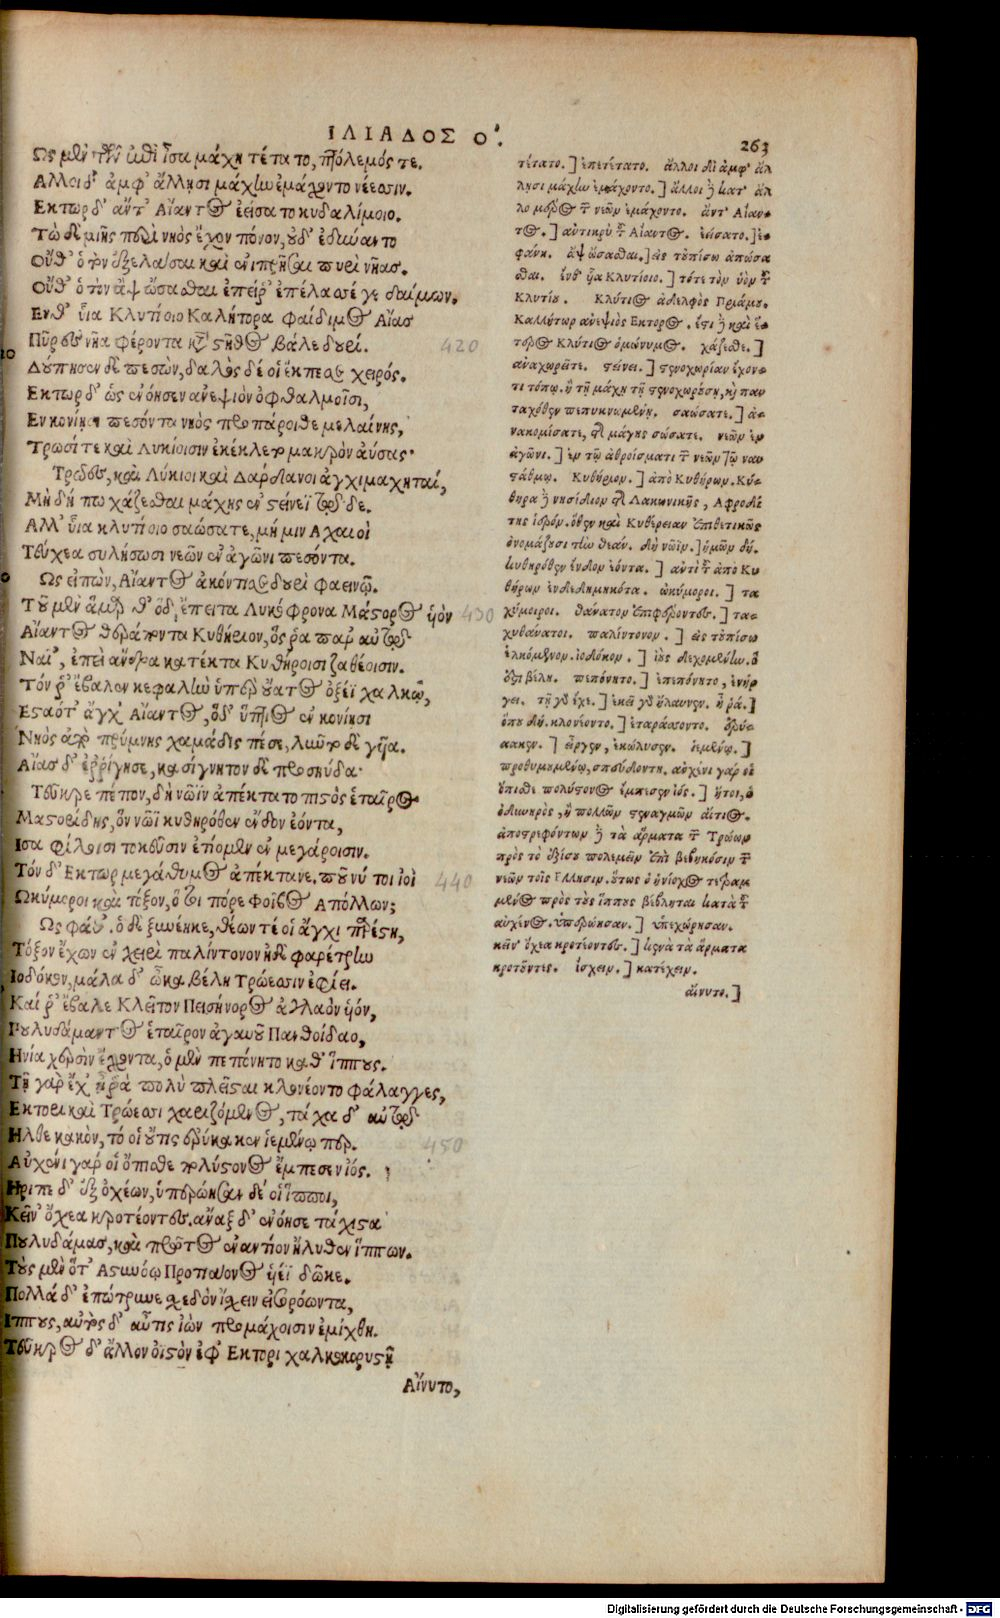 ΙΛΙΑΔΟΣ Ο.
263
Ως μὲν τῶν ἐπὶ ἶσα μάχη τέτατο, πτόλεμός τε.
Αλλοι δ' ἀμφ' ἄλλῃσι μάχην ἐμάχοντο νέεσσιν.
Εκτωρ δ' ἄντ' Αἴαντος ἐείσατο κυδαλίμοιο.
Τὼ δὲ μιῆς περὶ νηὸς ἔχον πόνον, οὐδ' ἐδύναντο
Οὔθ' ὁ τὸν ἐξελάσαι καὶ ἐνιπρῆσαι πυρὶ νῆας.
Οὔθ' ὁ τὸν ἂψ ὤσασθαι ἐπεί ῥ' ἐπέλασέ γε δαίμων.
Ενθ' ὗια Κλυτίοιο Καλήτορα φαίδιμος Αἴας
Πῦρ ἐς νῆα φέροντα κατὰ στῆθος βάλε δουρί.
420
Δούπησεν δὲ πεσὼν, δαλὸς δέ οἱ ἔκπεσε χειρός.
Εκτωρ δ' ὡς ἐνόησεν ἀνεψιὸν ὀφθαλμοῖσι,
Εν κονίῃσι πεσόντα νηὸς προπάροιθε μελαίνης,
Τρωσί τε καὶ Λυκίοισιν ἐκέκλετο μακρὸν ἀΰσας·
Τρῶες, καὶ Λύκιοι καὶ Δάρδανοι ἀγχιμαχηταί,
Μὴ δή πω χάζεσθαι μάχης ἐν στείνεϊ τῷδε.
Αλλ' ὗια κλυτίοιο σαώσατε, μή μιν Αχαιοὶ
Τεύχεα συλήσωσι νεῶν ἐν ἀγῶνι πεσόντα.
Ως εἰπὼν, Αἴαντος ἀκόντισε δουρὶ φαεινῷ.
Τοῦ μὲν ἅμαρθ' ὁ δ' ἔπειτα Λυκόφρονα Μάστορος υἱὸν
430
Αἴαντος θεράποντα Κυθήριον, ὅς ῥα παρ' αὐτῷ
Ναῖ', ἐπεὶ ἄνδρα κατέκτα Κυθήροισι ζαθέοισιν.
Τόν ῥ' ἔβαλεν κεφαλὴν ὑπὲρ οὔατος ὀξέϊ χαλκῷ,
Εσταότ' ἄγχ' Αἴαντος, ὁ δ' ὕπτιος ἐν κονίῃσι
Νηὸς ἀπὸ πρύμνης χαμάδις πέσε, λῦντο δὲ γῆα.
Αἴας δ' ἐῤῥίγησε, κασίγνητον δὲ προσηύδα·
Τεῦκρε πέπον, δὴ νῶϊν ἀπέκτατο πιστὸς ἑταῖρος
Μαστορίδης, ὃν νῶϊ κυθηρόθεν ἔνδον ἐόντα,
Ισα φίλοισι τοκεῦσιν ἐτίομεν ἐν μεγάροισιν.
Τόν δ' Εκτωρ μεγάθυμος ἀπέκτανε. ποῦ νύ τοι ἰοὶ
440
Ωκύμοροι καὶ τόξον, ὅ τοι πόρε Φοῖβος Απόλλων;
Ως φάθ'. ὁ δὲ ξυνέηκε, θέων τέ οἱ ἄγχι παρέστη,
Τόξον ἔχων ἐν χειρὶ παλίντονον ἠδὲ φαρέτρην
Ιοδόκον, μάλα δ' ὦκα βέλη Τρώεσσιν ἐφίει.
Καί ῥ' ἔβαλε Κλεῖτον Πεισήνορος ἀγλαὸν υἱόν,
Πουλυδάμαντος ἑταῖρον ἀγαυοῦ Πανθοίδαο,
Ηνία χερσὶν ἔχοντα, ὁ μὲν πεπόνητο καθ' ἵππους.
Τῇ γὰρ ἔχ' ᾗ ῥὰ πολὺ πλεῖσται κλονέοντο φάλαγγες,
Εκτορι καὶ Τρώεσσι χαριζόμενος, τάχα δ' αὐτῷ
Ηλθε κακὸν, τό οἱ οὔτις ἐρύκακεν ἱεμένῳ περ.
450
Αὐχένι γάρ οἱ ὄπισθε πολύστονος ἔμπεσεν ἰός.
Ηριπε δ' ἐξ ὀχέων, ὑπερώησαν δέ οἱ ἵπποι,
Κείν' ὄχεα κροτέοντες. ἄναξ δ' ἐνόησε τάχιστα
Πουλυδάμας, καὶ πρῶτος ἐναντίον ἤλυθεν ἵππων.
Τοὺς μὲν ὅτ' Αστυνόῳ Προτιάονος υἱέϊ δῶκε.
Πολλά δ' ἐπώτρυνε σχεδὸν ἴσχειν εἰσορόωντα,
Ιππους, αὐτὸς δ' αὖτις ἰὼν προμάχοισιν ἐμίχθη.
Τεῦκρος δ' ἄλλον ὀϊστὸν ἐφ' Εκτορι χαλκοκορυστῇ
Αἴνυτο,
τέτατο.] ἐπετέτατο. ἄλλοι δὲ ἀμφ' ἄλ
λῃσι μάχην ἐμάχοντο.] ἄλλοι ἢ κατ' ἄλ
λο μέρος τῶν νεῶν ἐμάχοντο. ἄντ' Αἴαν-
τος.] αὐτικρὺ τοῦ Αἴαντος. ἐείσατο.] ἐ-
φάνη. ἂψ ὤσασθαι.] εἰς τοὐπίσω ἀπώσα
σθαι. ἔνθ' ὗια Κλυτίοιο.] τότε τὸν υἱὸν τοῦ
Κλυτίου. Κλύτιος ἀδελφὸς Πριάμου.
Καλλύτωρ ἀνεψιὸς Εκτορος. ἔστι ἢ καὶ ἕ-
τερος Κλύτιος ὁμώνυμος. χάζεσθε.]
ἀναχωρεῖτε. στείνει.] στενοχωρίαν ἔχον-
τι τόπῳ. ἢ τῇ μάχῃ τῇ στενοχωρούσῃ, καὶ παν
ταχόθεν πεπυκνωμένῃ. σαώσατε.] ἀ-
νακομίσατε, ἐκ μάχης σώσατε. νεῶν ἐν
ἀγῶνι.] ἐν τῷ ἀθροίσματι τῶν νεῶν τῷ ναυ
στάθμῳ. Κυθήριον.] ἀπὸ Κυθήρων. Κύ-
θηρα ἢ νησίδιον τῆς Λακωνικῆς, Αφροδί
της ἱερόν. ὅθεν καὶ Κυθέρειαν ἐπιθετικῶς
ὀνομάζουσι τὴν θεάν. δὴ νῶϊν.] ἡμῶν δή.
κυθηρόθεν ἔνδον ἐόντα.] ἀντὶ τοῦ ἀπὸ Κυ
θήρων ἐνδεδημηκότα. ὠκύμοροι.] τα
χύμοιροι. θάνατον ἐπιφέροντες.] τα-
χυθάνατοι. παλίντονον.] εἰς τοὐπίσω
ἑλκόμενον. ἰοδόκον.] ἰοὺς δεχομένην. ὅ
ἐστι βέλη. πεπόνητο.] ἐπεπόνητο, ἐνήρ
γει. τῇ γὰρ ἔχε.] ἐκεῖ γὰρ ἤλαυνεν. ᾗ ῥά.]
ὅπου δή. κλονέοντο.] ἐταράσσοντο. ἐρύ-
κακεν.] εἶργεν, ἐκώλυσεν. ἱεμένῳ.]
προθυμουμένῳ, σπεύδοντι. αὐχένι γάρ οἱ
ὄπισθε πολύστονος ἔμπεσεν ἰός.] ἤτοι, ὁ
ὀδυνηρὸς, ἢ πολλῶν στεναγμῶν αἴτιος.
ἀποστρεφόντων ἢ τὰ ἅρματα τῶν Τρώων
πρὸς τὸ ἐξόπισω πολεμεῖν ἐπὶ βεβηκόσιν τῶν
νεῶν τοῖς Ελλησιν. οὕτως ὁ ἡνίοχος τετραμ
μένος πρὸς τοὺς ἵππους βέβληται κατὰ τοῦ
αὐχένος. ὑπερώησαν.] ὑπεχώρησαν.
κείν' ὄχεα κροτέοντες.] κενὰ τὰ ἅρματα
κροτοῦντες. ἴσχειν.] κατέχειν.
αἴνυτο.]
Digitalisierung gefördert durch die Deutsche Forschungsgemeinschaft - DFG